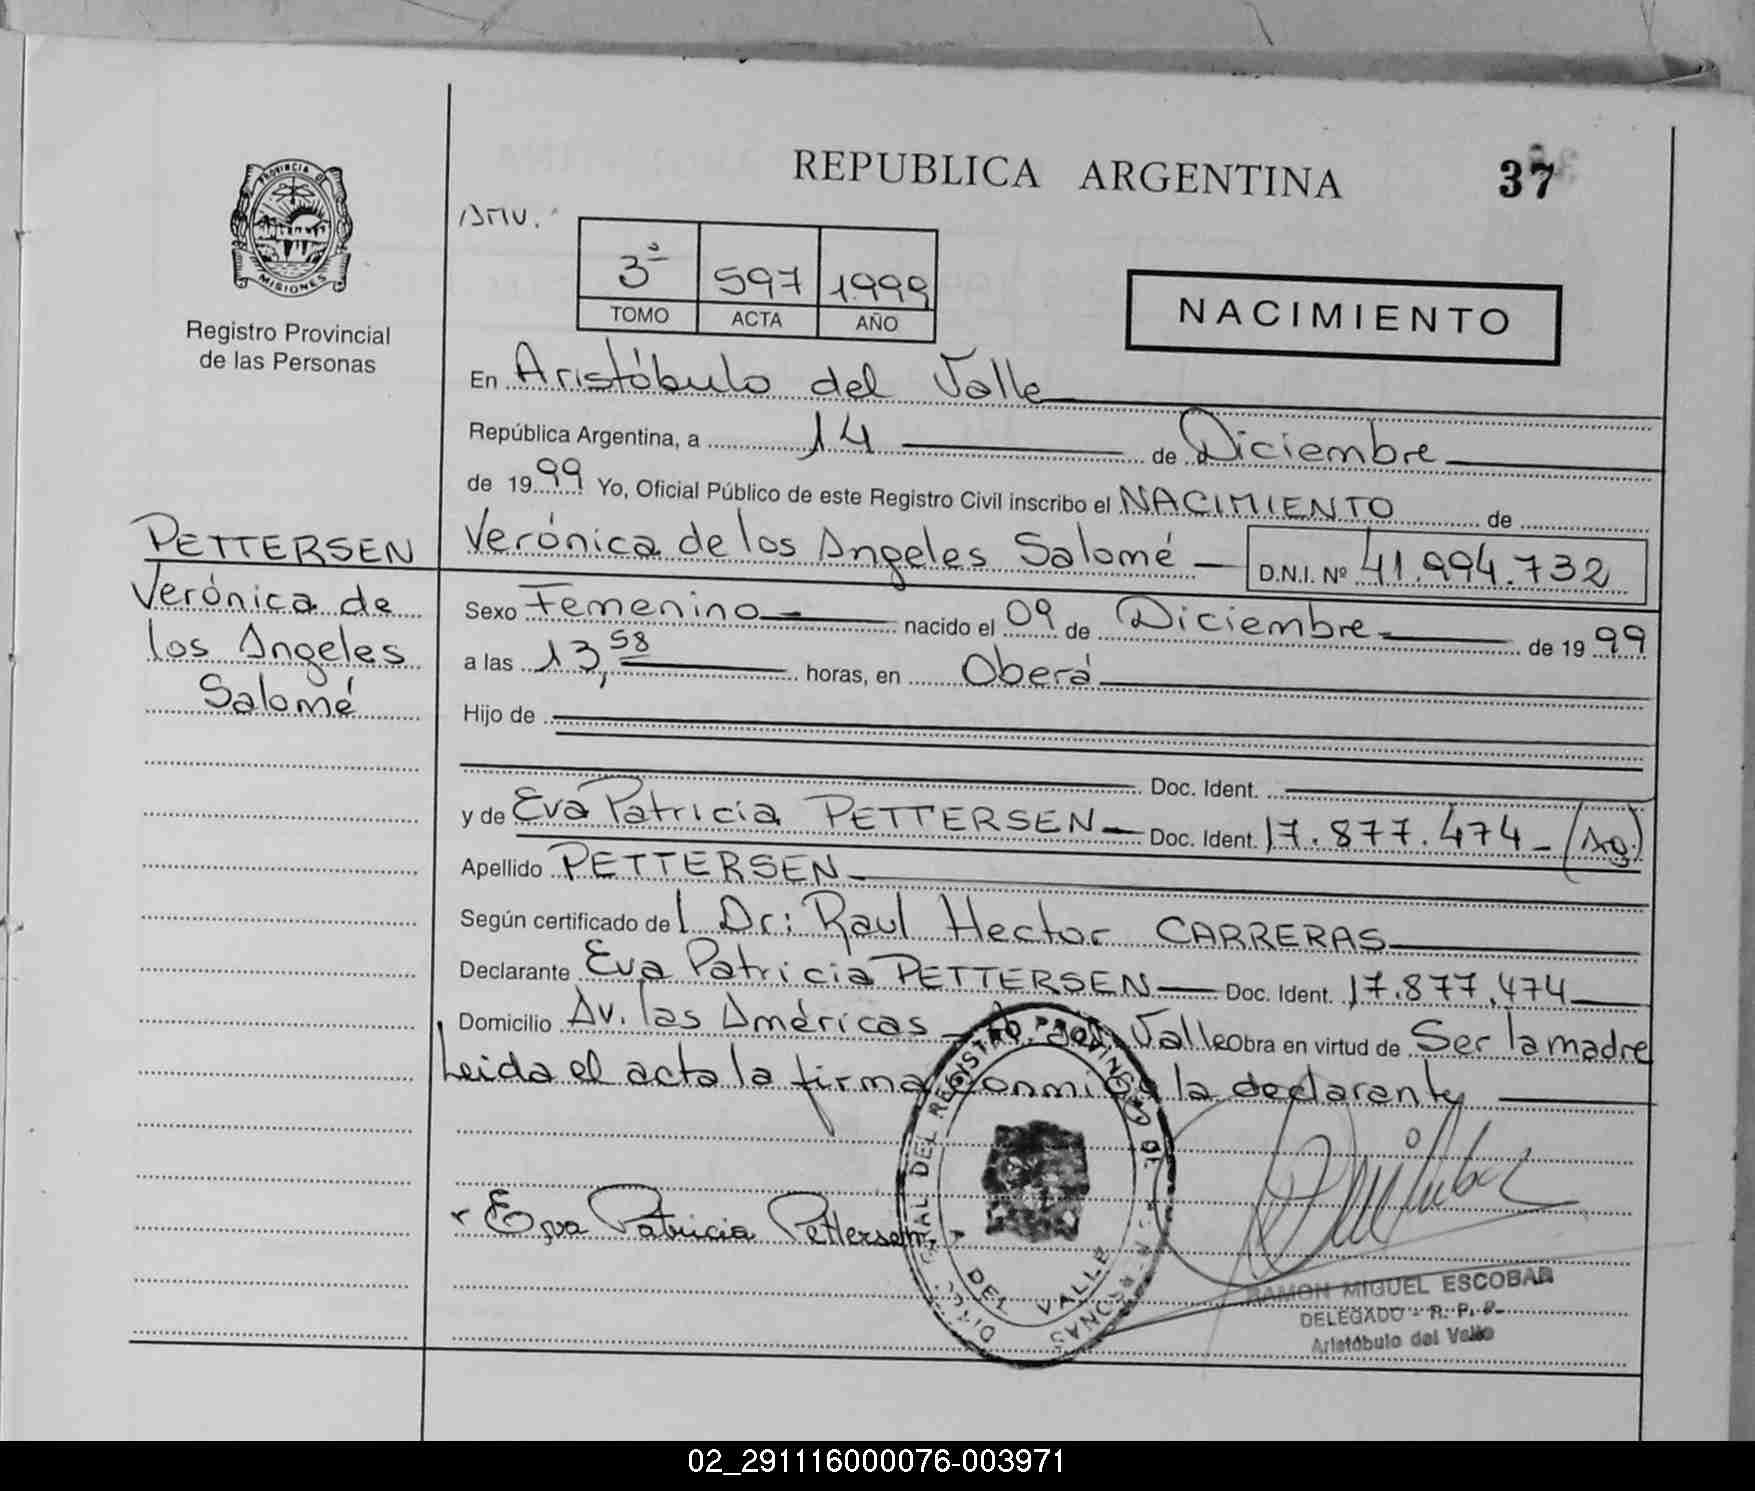 REPUBLICA ARGENTINA
37
PROVINCIA DE
MISIONES
Registro Provincial
de las Personas
3ª 597 1999
TOMO ACTA AÑO
NACIMIENTO
En Aristóbulo del Valle
República Argentina, a 14 de Diciembre
de 1999 Yo, Oficial Público de este Registro Civil inscribo el NACIMIENTO de
PETTERSEN
Verónica de
los Angeles
Salomé
Verónica de los Angeles Salomé D.N.I. Nº 41.994.732
Sexo Femenino nacido el 09 de Diciembre de 1999
a las 13,58 horas, en Oberá
Hijo de
Doc. Ident.
y de Eva Patricia PETTERSEN Doc. Ident. 17.877.474 (Ag)
Apellido PETTERSEN
Según certificado del Dr: Raul Hector CARRERAS
Declarante Eva Patricia PETTERSEN Doc. Ident. 17.877.474
Domicilio Av. las Américas del Valle Obra en virtud de Ser la madre
Leida el acta la firma conmigo la declarante
Eva Patricia Pettersen
REGISTRO PROVINCIAL DE
DEL VALLE
RAMON MIGUEL ESCOBAR
DELEGADO - R. P. P.
Aristóbulo del Valle
02_291116000076-003971